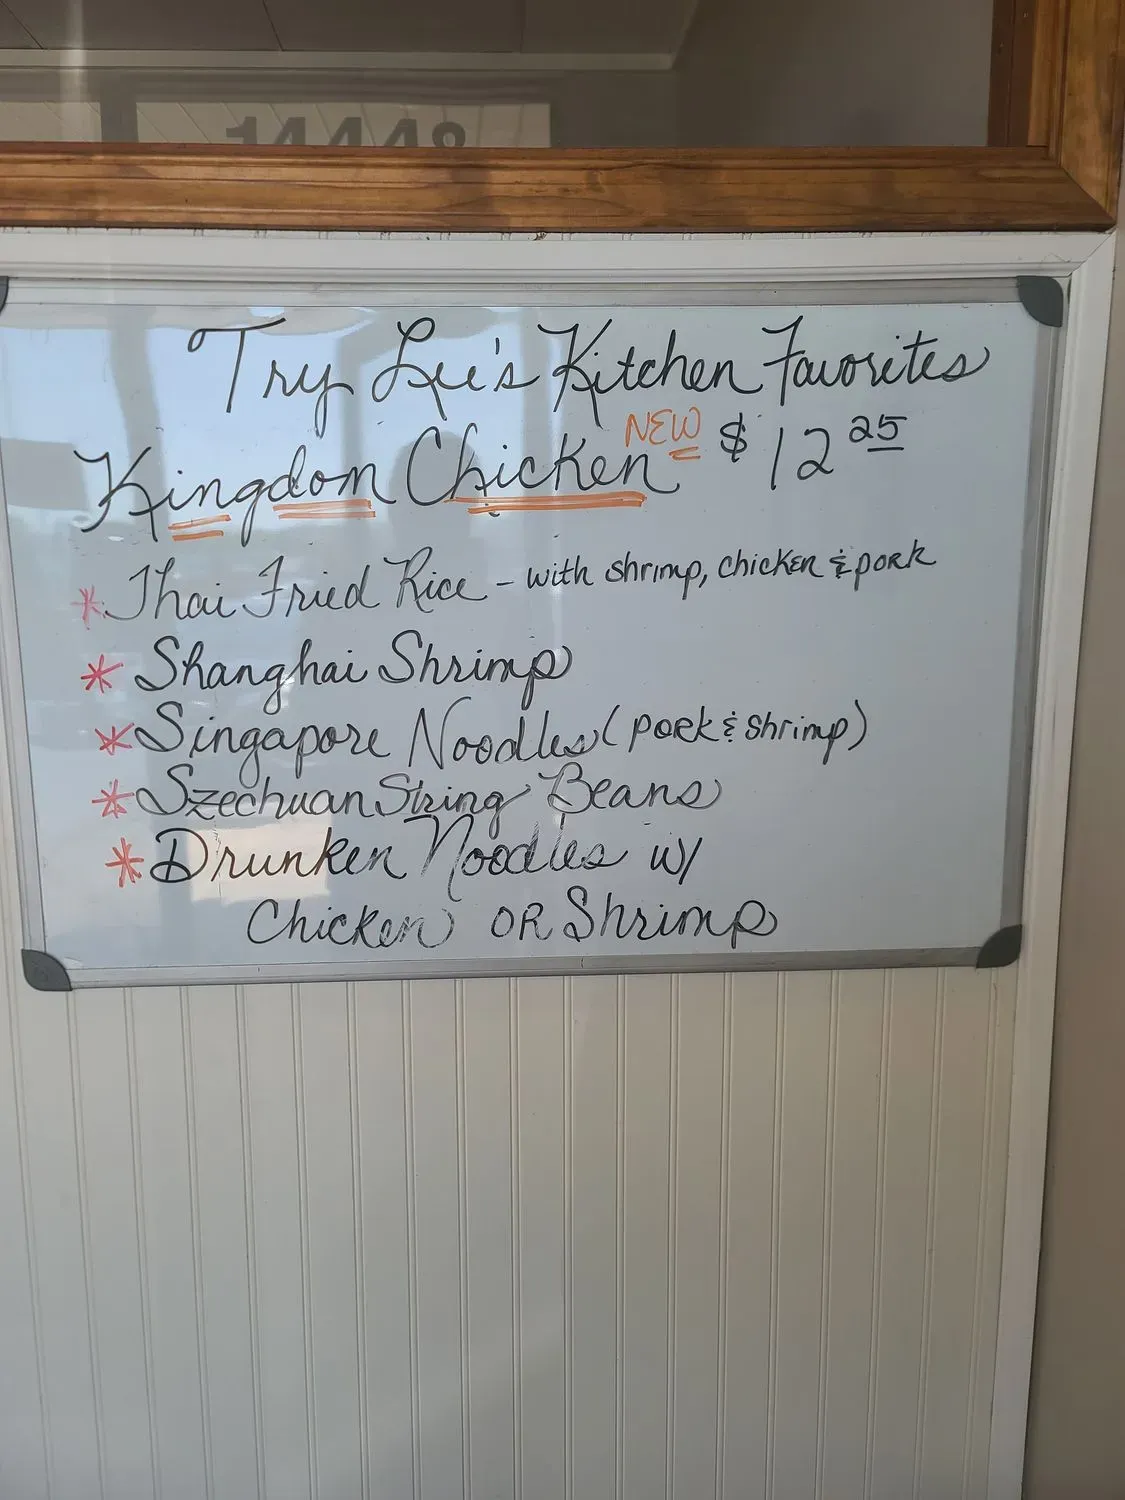 Try Lee's Kitchen Favorites
Kingdom Chicken NEW $12 25
* Thai Fried Rice - with shrimp, chicken & pork
* Shanghai Shrimp
* Singapore Noodles (pork & shrimp)
* Szechuan String Beans
* Drunken Noodles w/
Chicken OR Shrimp